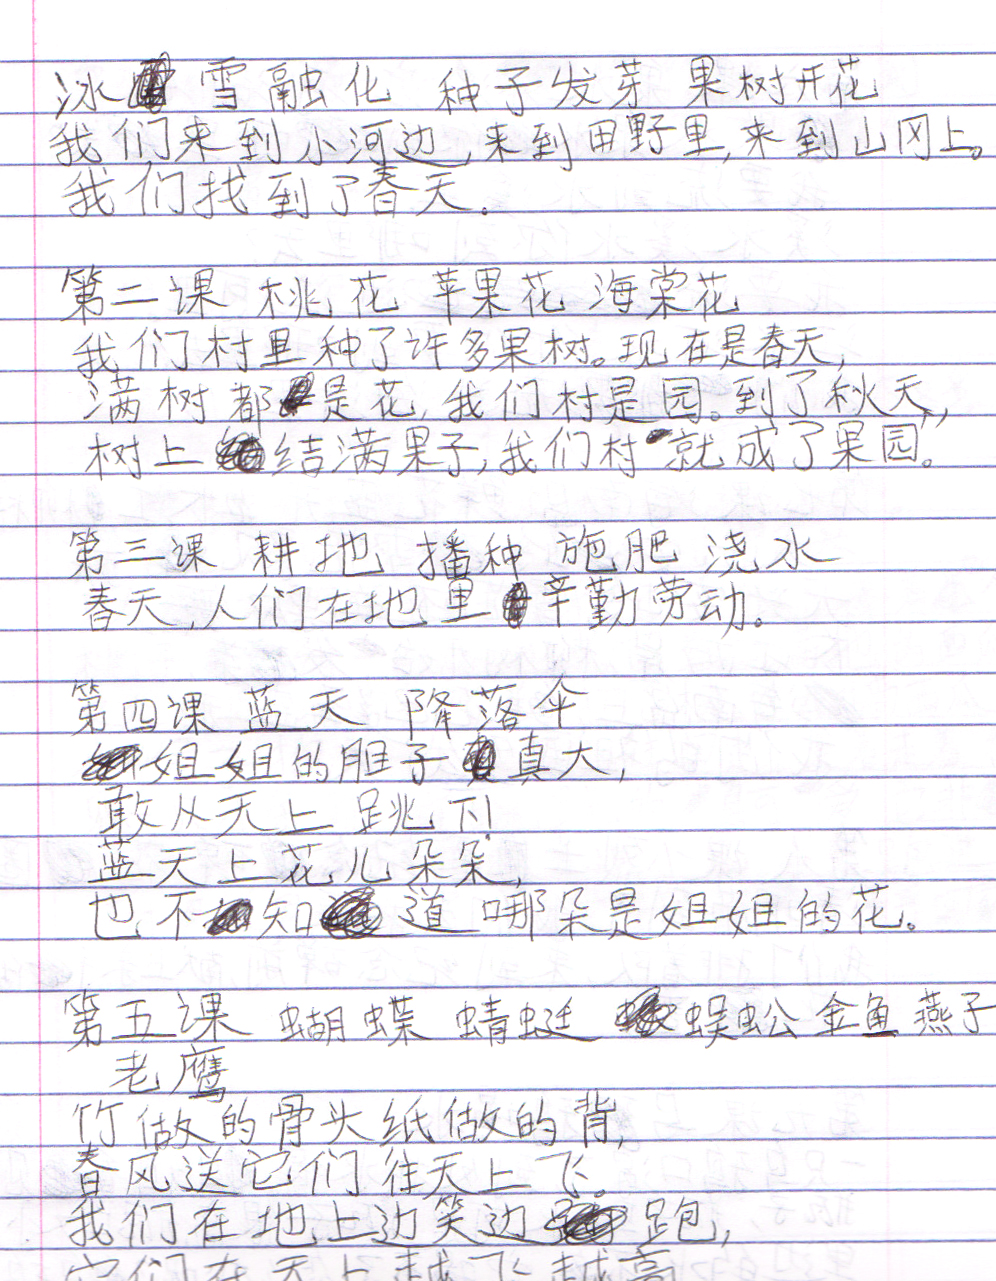 冰雪融化 种子发芽 果树开花
我们来到小河边,来到田野里,来到山冈上。
我们找到了春天.
第二课 桃花 苹果花 海棠花
我们村里种了许多果树。现在是春天,
满树都是花,我们村是园。到了秋天,
树上结满果子,我们村就成了果园。
第三课 耕地 播种 施肥 浇水
春天,人们在地里辛勤劳动。
第四课 蓝天 降落伞
姐姐的胆子真大,
敢从天上跳下!
蓝天上花儿朵朵,
也不知道哪朵是姐姐的花。
第五课 蝴蝶 蜻蜓 蜈蚣 金鱼 燕子
老鹰
竹做的骨头纸做的背,
春风送它们往天上飞。
我们在地上边笑边跑,
它们在天上越飞越高